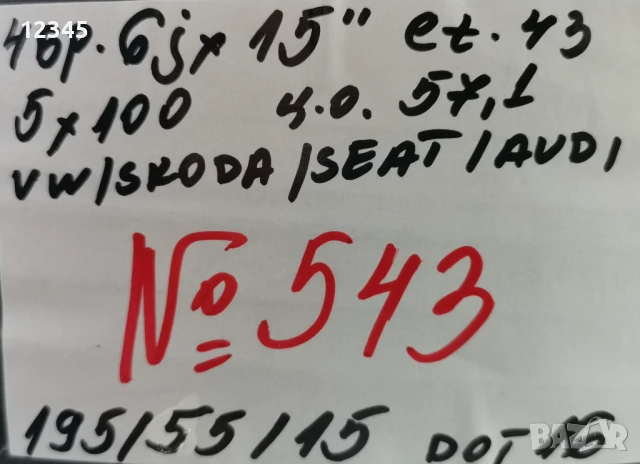 12345
4бр. 6jx 15" et. 43
5x100 ц.о. 57,1
VW/SKODA/SEAT/AUDI
№ 543
195/55/15 DOT 16
BAZAR